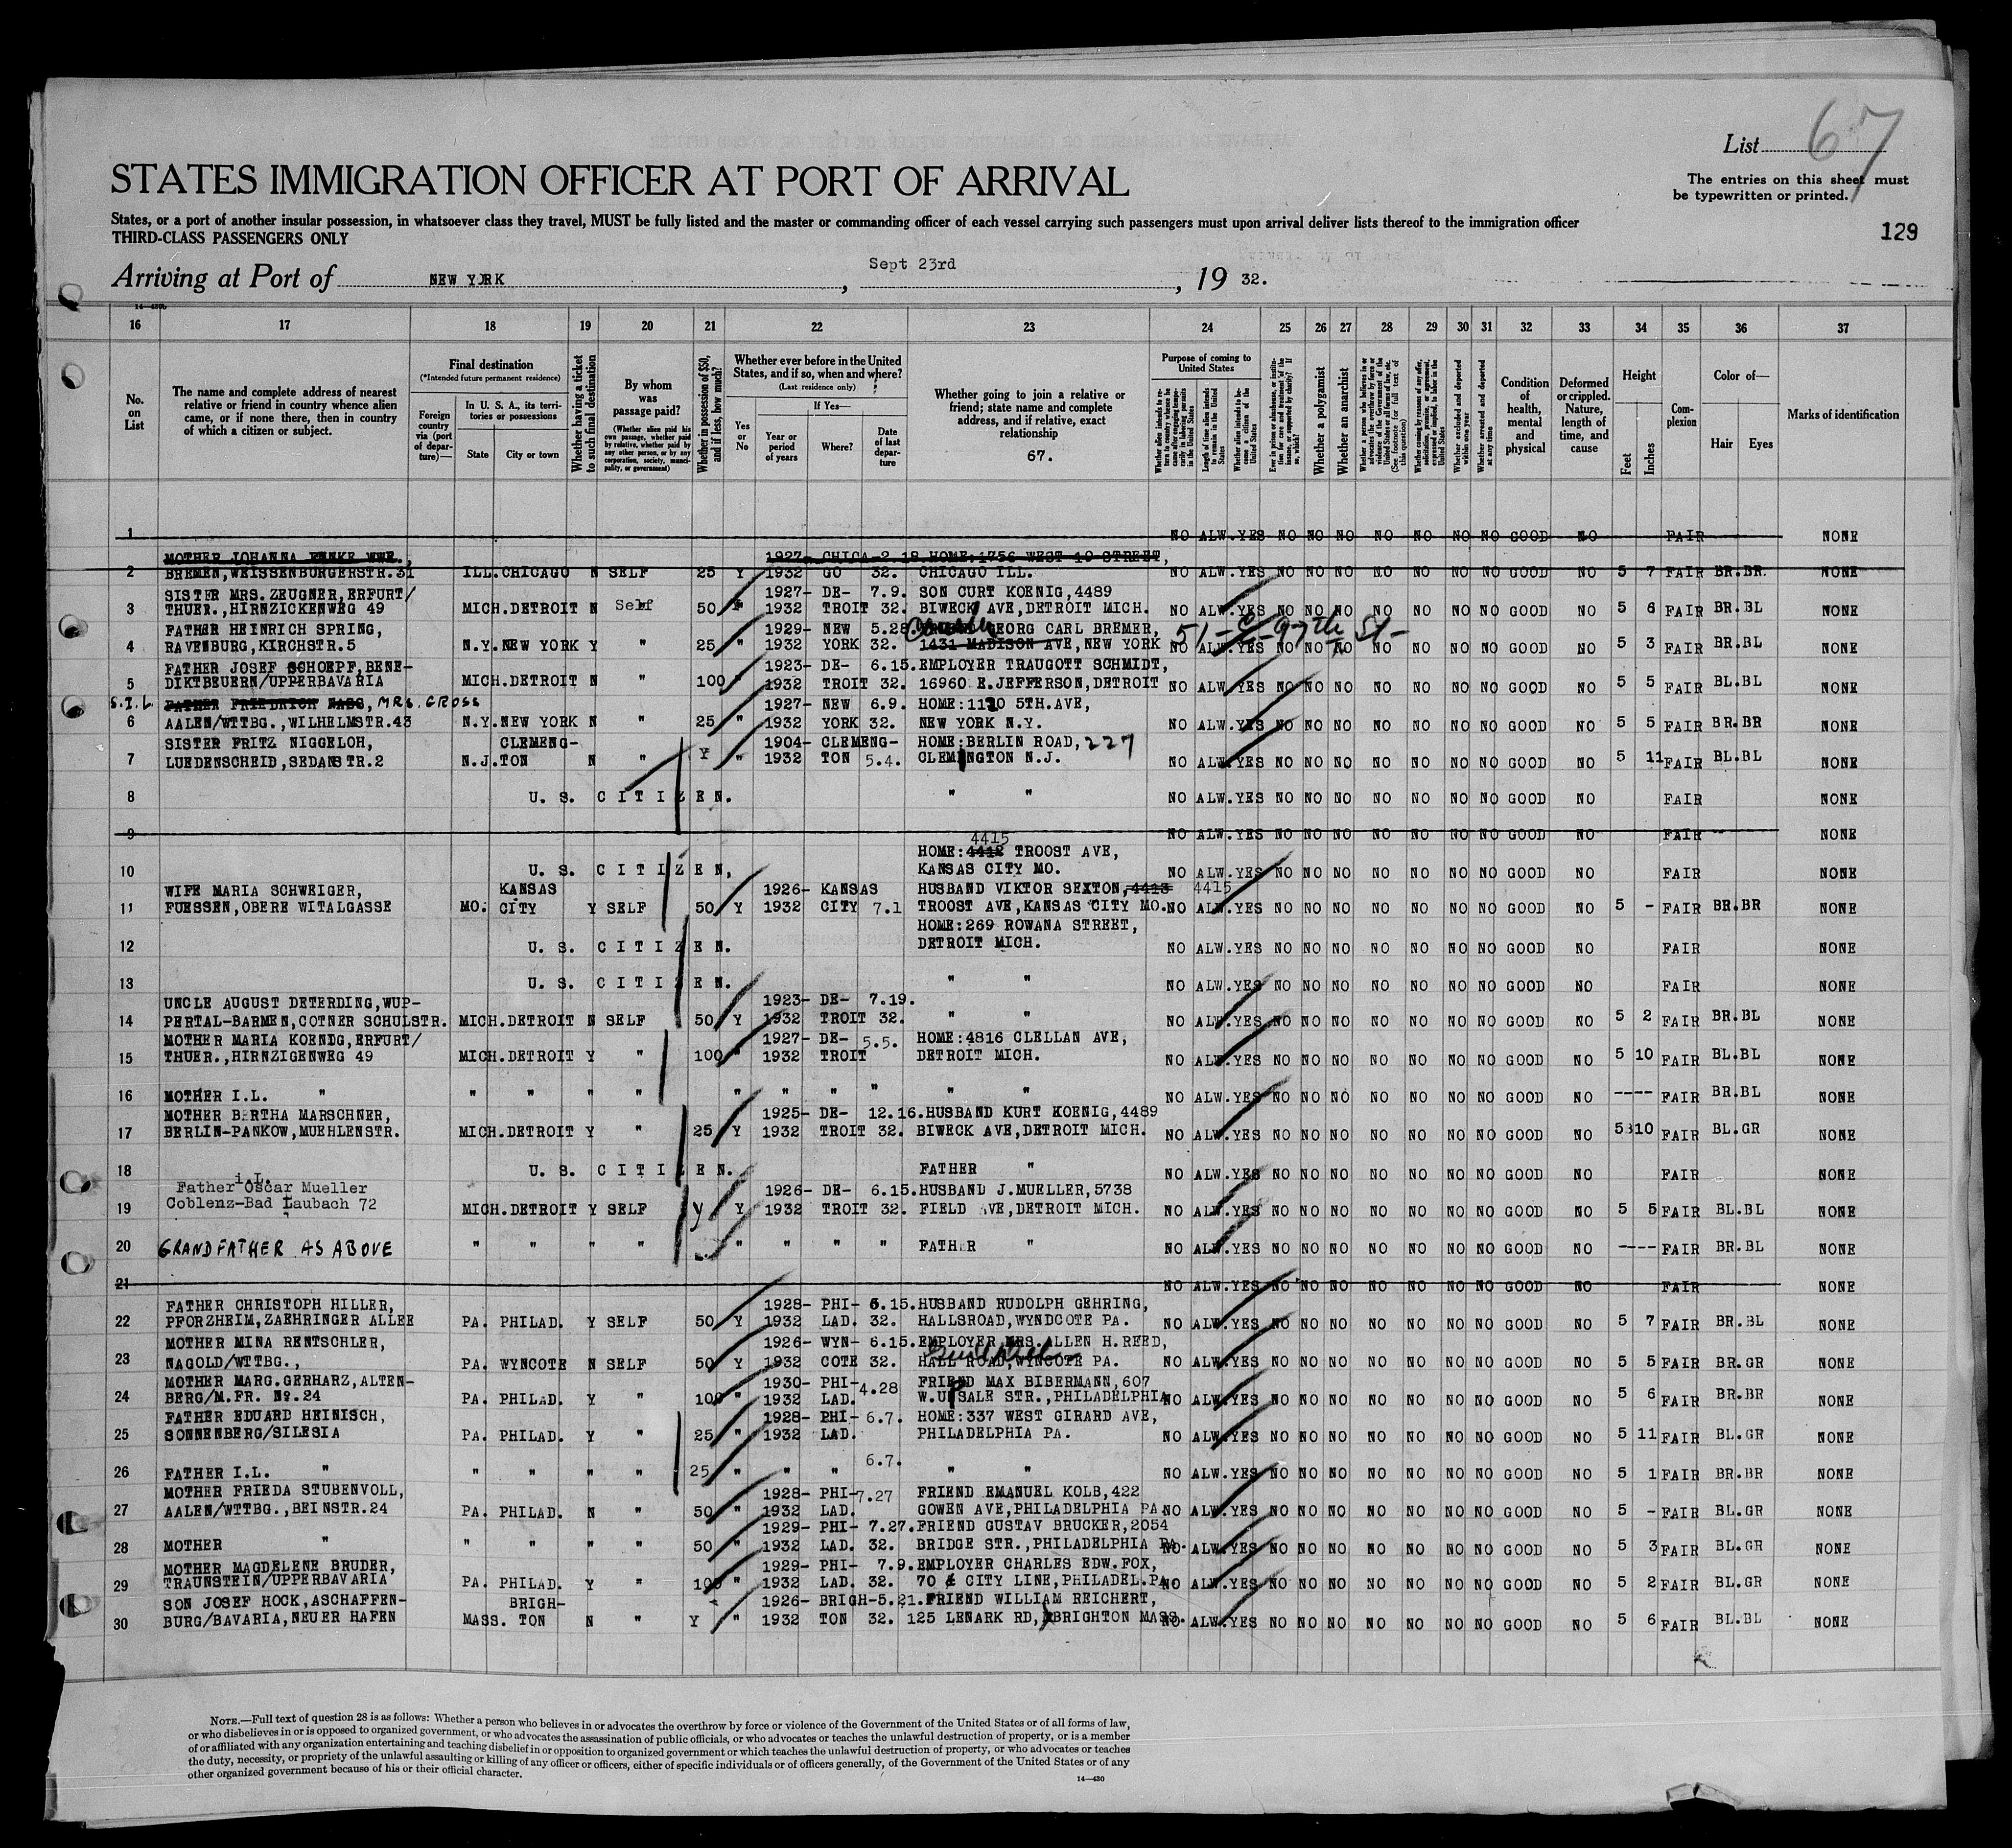 List 67
The entries on this sheet must
be typewritten or printed.
STATES IMMIGRATION OFFICER AT PORT OF ARRIVAL
States, or a port of another insular possession, in whatsoever class they travel, MUST be fully listed and the master or commanding officer of each vessel carrying such passengers must upon arrival deliver lists thereof to the immigration officer
THIRD-CLASS PASSENGERS ONLY
129
Arriving at Port of NEW YORK, Sept 23rd, 19 32.
16 17 18 19 20 21 22 23 24 25 26 27 28 29 30 31 32 33 34 35 36 37
No. on List
The name and complete address of nearest relative or friend in country whence alien came, or if none there, then in country of which a citizen or subject.
Final destination
(*Intended future permanent residence)
Foreign country via (port of departure)—
In U. S. A., its territories or possessions
State
City or town
Whether having a ticket to such final destination
By whom was passage paid?
(Whether alien paid his own passage, whether paid by relative, whether paid by any other person, or by any corporation, society, municipality, or government)
Whether in possession of $50, and if less, how much?
Whether ever before in the United States, and if so, when and where?
(Last residence only)
Yes or No
If Yes—
Year or period of years
Where?
Date of last departure
Whether going to join a relative or friend; state name and complete address, and if relative, exact relationship
67.
Purpose of coming to United States
Length of time alien intends to remain in the United States
Whether alien intends to become a citizen of the United States
Whether a polygamist
Whether an anarchist
Whether excluded and deported within one year
Whether arrested and deported at any time
Condition of health, mental and physical
Deformed or crippled. Nature, length of time, and cause
Height
Feet
Inches
Complexion
Color of—
Hair
Eyes
Marks of identification
1 NO ALW. YES NO NO NO NO NO NO NO GOOD NO FAIR NONE
MOTHER JOHANNA WWE. 1927- CHICA- 2.18. HOME:1756 WEST 19 STREET,
2 BREMEN,WEISSENBURGERSTR.31 ILL. CHICAGO N SELF 25 Y 1932 GO 32. CHICAGO ILL. NO ALW. YES NO NO NO NO NO NO NO GOOD NO 5 7 FAIR BR.BR. NONE
SISTER MRS.ZEUGNER,ERFURT/ 1927- DE- 7.9. SON CURT KOENIG,4489
3 THUER.,HIRNZICKENWEG 49 MICH. DETROIT N Self 50 1932 TROIT 32. BIWECK AVE,DETROIT MICH. NO ALW. YES NO NO NO NO NO NO NO GOOD NO 5 6 FAIR BR.BL NONE
FATHER HEINRICH SPRING, 1929- NEW 5.28. GEORG CARL BREMER, 51-E-97th St-
4 RAVENBURG,KIRCHSTR.5 N.Y. NEW YORK Y " 25 " 1932 YORK 32. 1431 MADISON AVE,NEW YORK NO ALW. YES NO NO NO NO NO NO NO GOOD NO 5 3 FAIR BR.BL NONE
FATHER JOSEF SCHOEPF,BENE- 1923- DE- 6.15. EMPLOYER TRAUGOTT SCHMIDT,
5 DIKTBEUERN/UPPERBAVARIA MICH. DETROIT N " 100 " 1932 TROIT 32. 16960 E.JEFFERSON,DETROIT NO ALW. YES NO NO NO NO NO NO NO GOOD NO 5 5 FAIR BL.BL NONE
S.I.L. FATHER FRIEDRICH HASS, MRS. GROSS 1927- NEW 6.9. HOME:1120 5TH.AVE,
6 AALEN/WTTBG.,WILHELMSTR.43 N.Y. NEW YORK N " 25 " 1932 YORK 32. NEW YORK N.Y. NO ALW. YES NO NO NO NO NO NO NO GOOD NO 5 5 FAIR BR.BR NONE
SISTER FRITZ NIGGELOH, CLEMENG- 1904- CLEMENG- HOME:BERLIN ROAD, 227
7 LUEDENSCHEID,SEDANSTR.2 N.J. TON N " Y " 1932 TON 5.4. CLEMINGTON N.J. NO ALW. YES NO NO NO NO NO NO NO GOOD NO 5 11 FAIR BL.BL NONE
8 U. S. CITIZEN. " " NO ALW. YES NO NO NO NO NO NO NO GOOD NO FAIR NONE
9 NO ALW. YES NO NO NO NO NO NO NO GOOD NO FAIR NONE
4415
HOME:4412 TROOST AVE,
10 U. S. CITIZEN, KANSAS CITY MO. NO ALW. YES NO NO NO NO NO NO NO GOOD NO FAIR NONE
WIFE MARIA SCHWEIGER, KANSAS 1926- KANSAS HUSBAND VIKTOR SEXTON,4413 4415
11 FUESSEN,OBERE WITALGASSE MO. CITY Y SELF 50 Y 1932 CITY 7.1 TROOST AVE,KANSAS CITY MO. NO ALW. YES NO NO NO NO NO NO NO GOOD NO 5 - FAIR BR.BR NONE
HOME:269 ROWANA STREET,
12 U. S. CITIZEN. DETROIT MICH. NO ALW. YES NO NO NO NO NO NO NO GOOD NO FAIR NONE
13 U. S. CITIZEN. " " NO ALW. YES NO NO NO NO NO NO NO GOOD NO FAIR NONE
UNCLE AUGUST DETERDING,WUP- 1923- DE- 7.19.
14 PERTAL-BARMEN,COTNER SCHULSTR. MICH. DETROIT N SELF 50 Y 1932 TROIT 32. " " NO ALW. YES NO NO NO NO NO NO NO GOOD NO 5 2 FAIR BR.BL NONE
MOTHER MARIA KOENIG,ERFURT/ 1927- DE- 5.5. HOME:4816 CLELLAN AVE,
15 THUER.,HIRNZIGENWEG 49 MICH. DETROIT Y " 100 " 1932 TROIT DETROIT MICH. NO ALW. YES NO NO NO NO NO NO NO GOOD NO 5 10 FAIR BL.BL NONE
16 MOTHER I.L. " " " " " " " " " " " NO ALW. YES NO NO NO NO NO NO NO GOOD NO ---- FAIR BR.BL NONE
MOTHER BERTHA MARSCHNER, 1925- DE- 12.16. HUSBAND KURT KOENIG,4489
17 BERLIN-PANKOW,MUEHLENSTR. MICH. DETROIT Y " 25 Y 1932 TROIT 32. BIWECK AVE,DETROIT MICH. NO ALW. YES NO NO NO NO NO NO NO GOOD NO 5 10 FAIR BL.GR NONE
18 U. S. CITIZEN. FATHER " NO ALW. YES NO NO NO NO NO NO NO GOOD NO FAIR NONE
i.L.
Father Oscar Mueller 1926- DE- 6.15. HUSBAND J.MUELLER,5738
19 Coblenz-Bad Laubach 72 MICH. DETROIT Y SELF y Y 1932 TROIT 32. FIELD AVE,DETROIT MICH. NO ALW. YES NO NO NO NO NO NO NO GOOD NO 5 5 FAIR BL.BL NONE
20 GRANDFATHER AS ABOVE " " " " " " " " FATHER " NO ALW. YES NO NO NO NO NO NO NO GOOD NO ---- FAIR BR.BL NONE
21 NO ALW. YES NO NO NO NO NO NO NO GOOD NO FAIR NONE
FATHER CHRISTOPH HILLER, 1928- PHI- 6.15. HUSBAND RUDOLPH GEHRING,
22 PFORZHEIM,ZAEHRINGER ALLEE PA. PHILAD. Y SELF 50 Y 1932 LAD. 32. HALLSROAD,WYNDCOTE PA. NO ALW. YES NO NO NO NO NO NO NO GOOD NO 5 7 FAIR BR.BL NONE
MOTHER MINA RENTSCHLER, 1926- WYN- 6.15. EMPLOYER MRS.ALLEN H.REED,
23 NAGOLD/WTTBG., PA. WYNCOTE N SELF 50 Y 1932 COTE 32. HALL ROAD,WYNCOTE PA. NO ALW. YES NO NO NO NO NO NO NO GOOD NO 5 5 FAIR BR.GR NONE
MOTHER MARG.GERHARZ,ALTEN- 1930- PHI- 4.28 FRIEND MAX BIBERMANN,607
24 BERG/M.FR. No.24 PA. PHILAD. Y " 100 " 1932 LAD. W.UPSALE STR.,PHILADELPHIA NO ALW. YES NO NO NO NO NO NO NO GOOD NO 5 6 FAIR BR.BR NONE
FATHER EDUARD HEINISCH, 1928- PHI- 6.7. HOME:337 WEST GIRARD AVE,
25 SONNENBERG/SILESIA PA. PHILAD. Y " 25 " 1932 LAD. PHILADELPHIA PA. NO ALW. YES NO NO NO NO NO NO NO GOOD NO 5 11 FAIR BL.GR NONE
26 FATHER I.L. " " " " " 25 " " " 6.7. " " NO ALW. YES NO NO NO NO NO NO NO GOOD NO 5 1 FAIR BR.BR NONE
MOTHER FRIEDA STUBENVOLL, 1928- PHI- 7.27 FRIEND EMANUEL KOLB,422
27 AALEN/WTTBG.,BEINSTR.24 PA. PHILAD. N " 50 " 1932 LAD. GOWEN AVE,PHILADELPHIA PA. NO ALW. YES NO NO NO NO NO NO NO GOOD NO 5 - FAIR BL.GR NONE
1929- PHI- 7.27. FRIEND GUSTAV BRUCKER,2054
28 MOTHER " " " " " 50 " 1932 LAD. 32. BRIDGE STR.,PHILADELPHIA PA. NO ALW. YES NO NO NO NO NO NO NO GOOD NO 5 3 FAIR BL.GR NONE
MOTHER MAGDELENE BRUDER, 1929- PHI- 7.9. EMPLOYER CHARLES EDW.FOX,
29 TRAUNSTEIN/UPPERBAVARIA PA. PHILAD. Y " 100 " 1932 LAD. 32. 70 & CITY LINE,PHILADEL.PA. NO ALW. YES NO NO NO NO NO NO NO GOOD NO 5 2 FAIR BL.GR NONE
SON JOSEF HOCK,ASCHAFFEN- BRIGH- 1926- BRIGH- 5.21. FRIEND WILLIAM REICHERT,
30 BURG/BAVARIA,NEUER HAFEN MASS. TON N " Y " 1932 TON 32. 125 LENARK RD, BRIGHTON MASS. NO ALW. YES NO NO NO NO NO NO NO GOOD NO 5 6 FAIR BL.BL NONE
NOTE.—Full text of question 28 is as follows: Whether a person who believes in or advocates the overthrow by force or violence of the Government of the United States or of all forms of law,
or who disbelieves in or is opposed to organized government, or who advocates the assassination of public officials, or who advocates or teaches the unlawful destruction of property, or is a member
of or affiliated with any organization entertaining and teaching disbelief in or opposition to organized government or which teaches the unlawful destruction of property, or who advocates or teaches
the duty, necessity, or propriety of the unlawful assaulting or killing of any officer or officers, either of specific individuals or of officers generally, of the Government of the United States or of any
other organized government because of his or their official character.
14—430